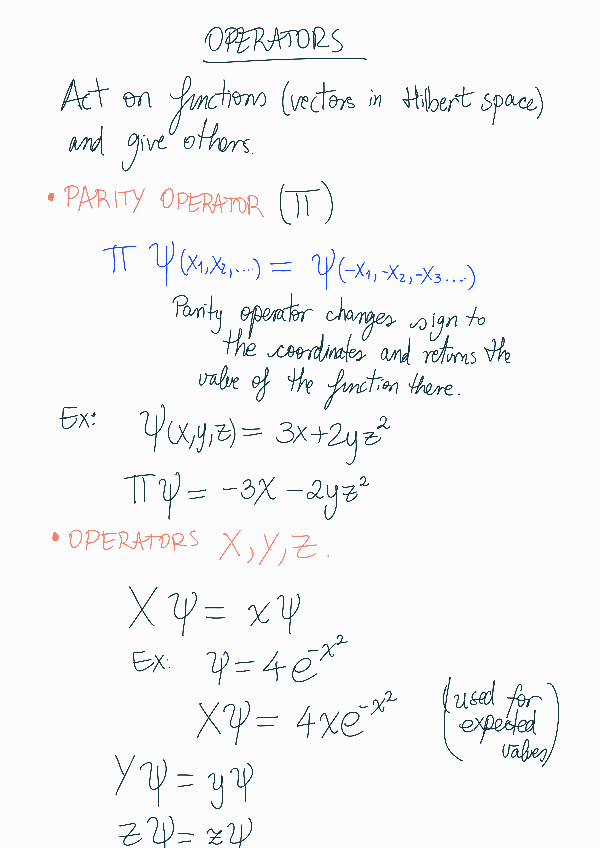 OPERATORS
Act on functions (vectors in Hilbert space)
and give others.
• PARITY OPERATOR (Π)
Π Ψ(x₁,x₂,...) = Ψ(-x₁,-x₂,-x₃....)
Parity operator changes sign to
the coordinates and returns the
value of the function there.
Ex: Ψ(x,y,z) = 3x+2yz²
ΠΨ = -3x -2yz²
• OPERATORS X, Y, Z.
XΨ = xΨ
Ex: Ψ = 4e^{-x²}
XΨ = 4xe^{-x²} (used for
expected
values)
YΨ = yΨ
ZΨ = zΨ